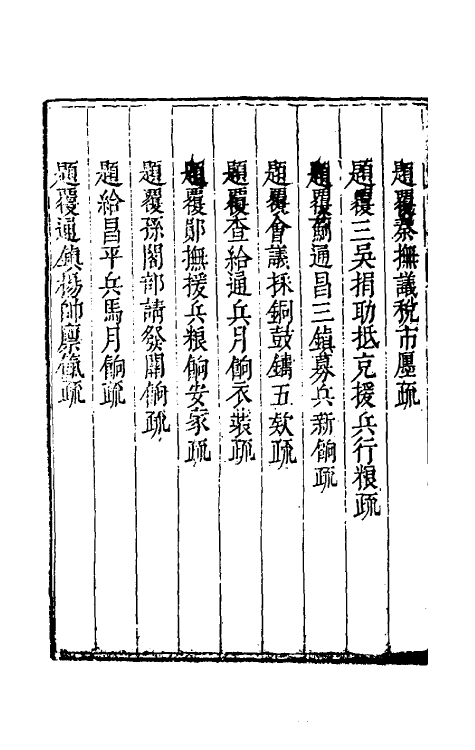 題覆秦撫議稅市廛疏
題覆三吳捐助抵克援兵行粮疏
題覆薊通昌三鎮募兵新餉疏
題覆會議採銅鼓鑄五欵疏
題覆查給通兵月餉衣裝疏
題覆鄖撫援兵粮餉安家疏
題覆孫閣部請發關餉疏
題給昌平兵馬月餉疏
題覆通鎮楊帥廪氣疏